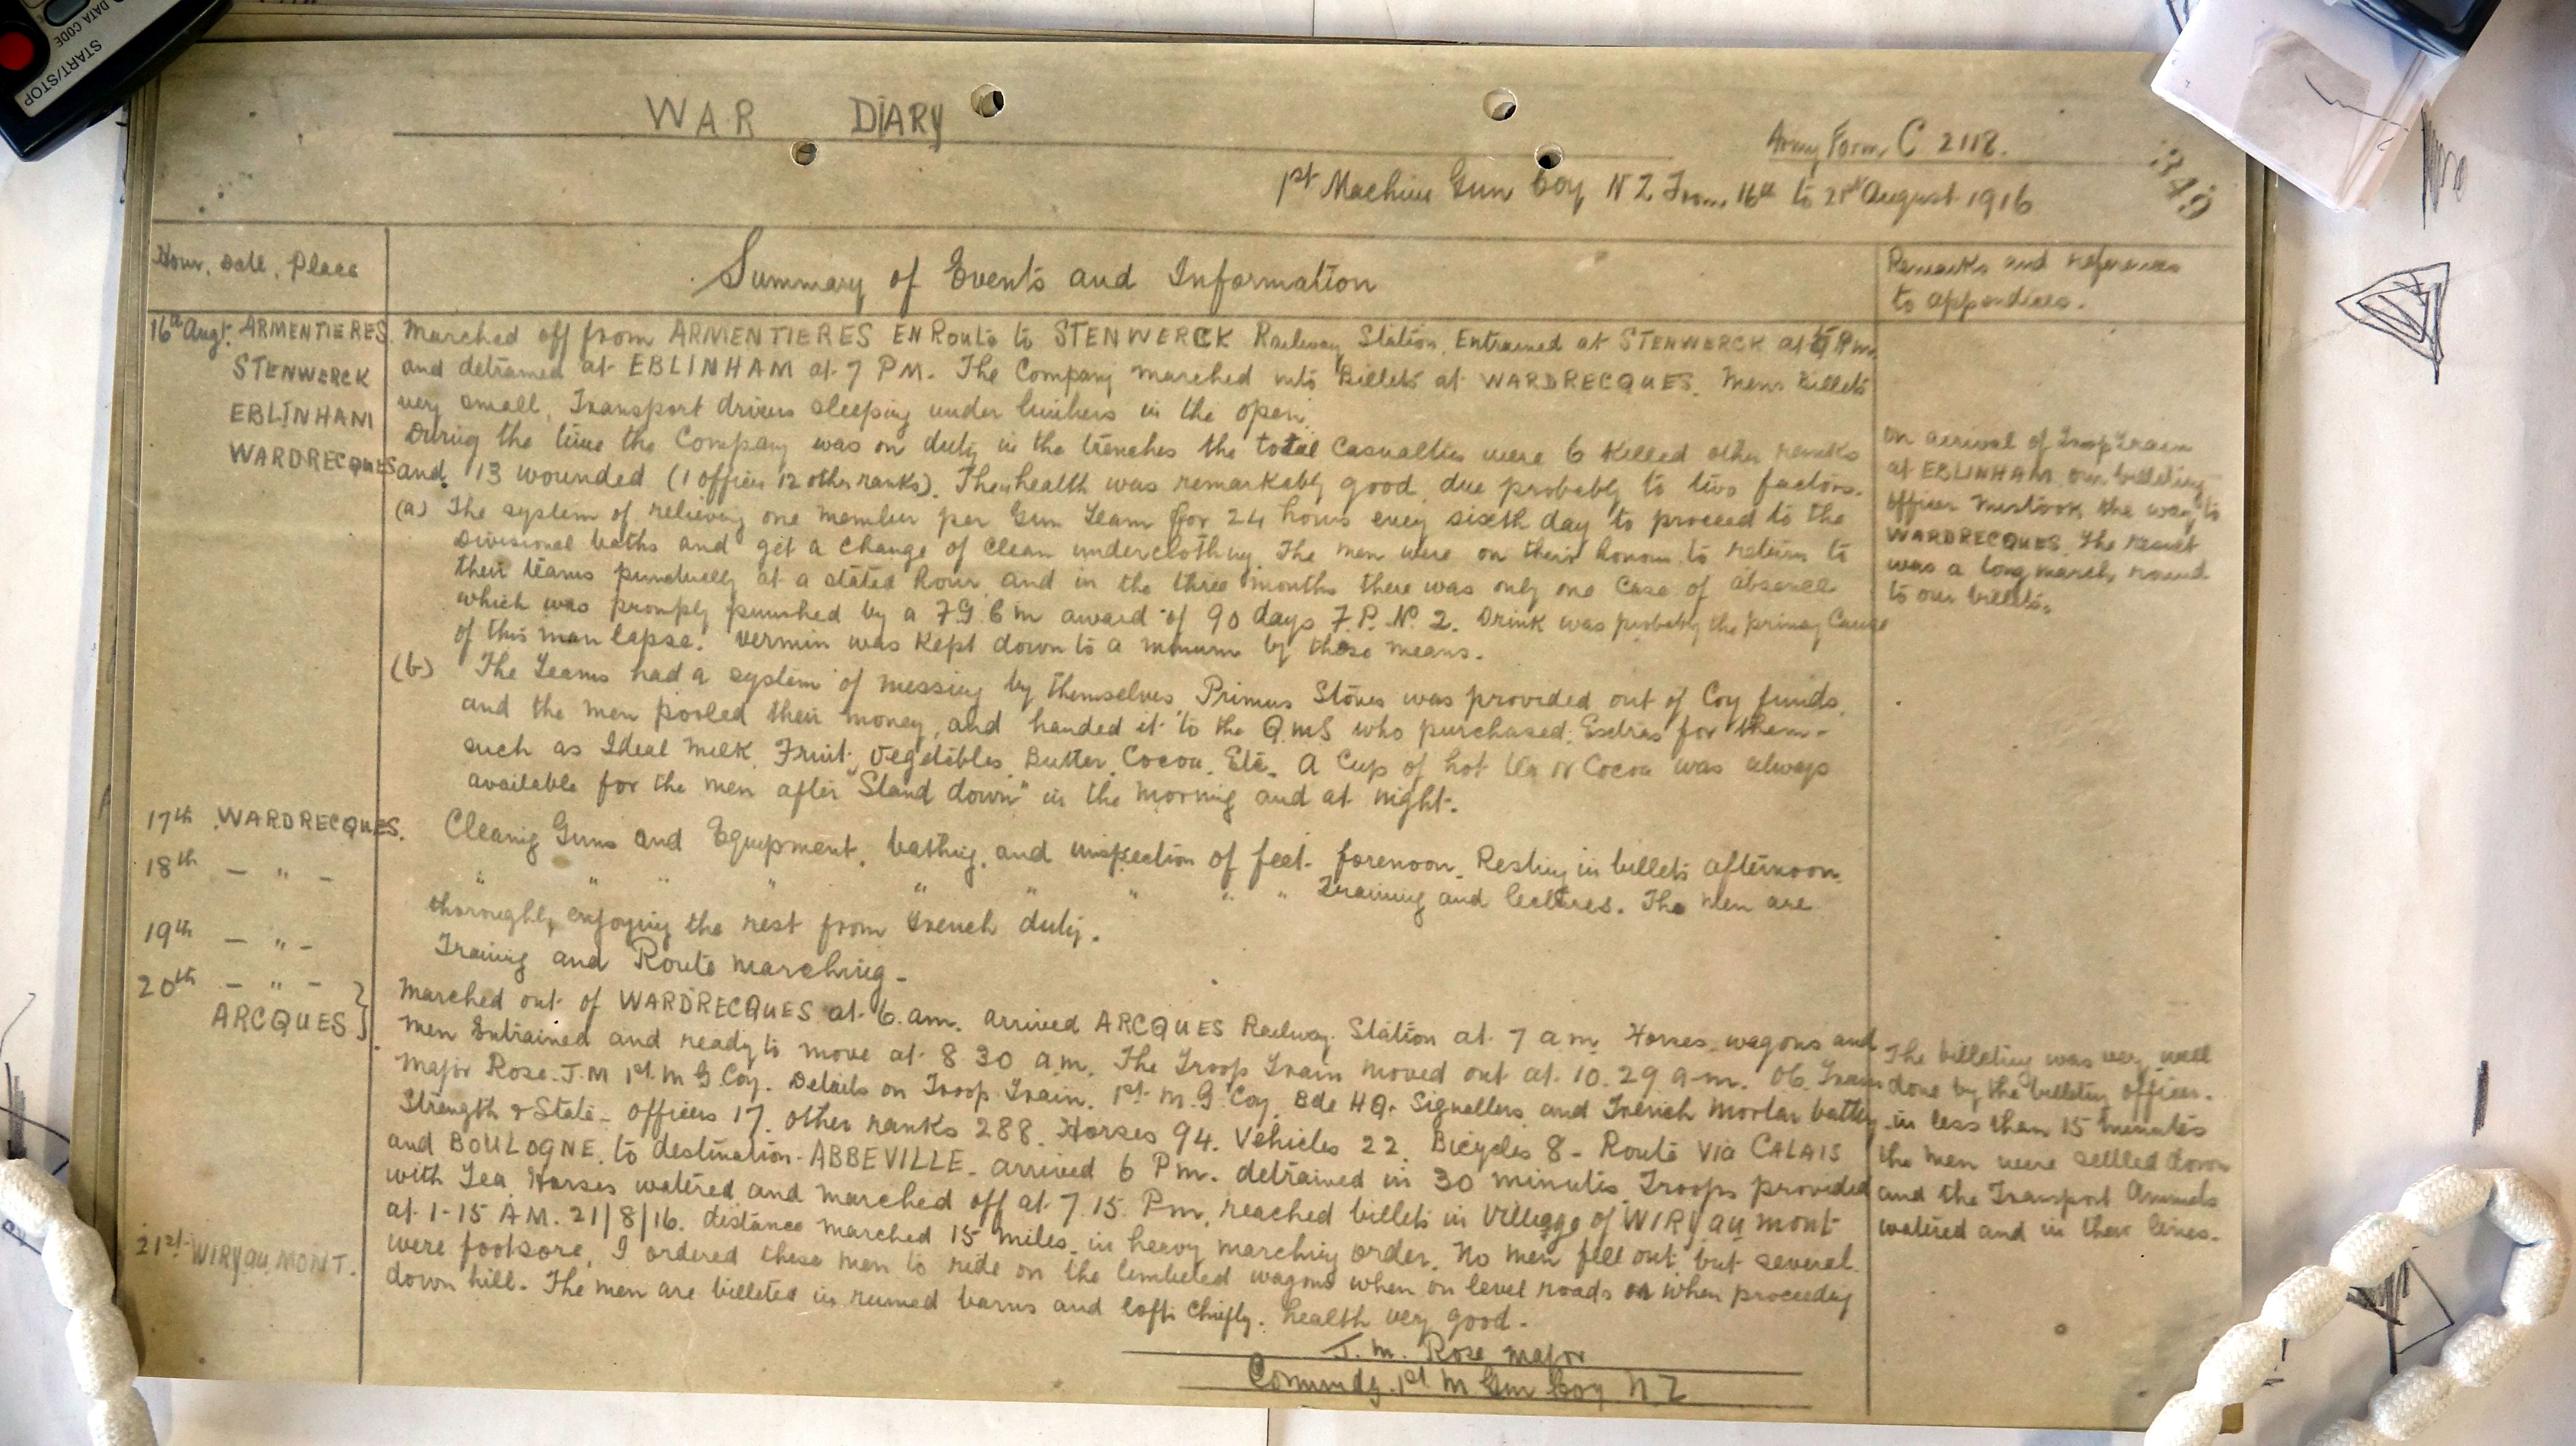 DATA CODE
START/STOP
WAR DIARY
Army Form C 2118.
349
1st Machine Gun Coy N Z From 16th to 21st August 1916
Hour, Date, Place
Summary of Events and Information
Remarks and references
to appendices.
16th Augt. ARMENTIERES.
STENWERCK
EBLINHAM
WARDRECQUES
Marched off from ARMENTIERES EN Route to STENWERCK Railway Station. Entrained at STENWERCK at Pm
and detrained at EBLINHAM at 7 PM. The Company marched into Billets at WARDRECQUES. Mens billets
very small, Transport drivers sleeping under limbers in the open.
During the time the Company was on duty in the trenches the total Casualties were 6 Killed other ranks
and 13 wounded (1 officer 12 other ranks). Their health was remarkably good, due probably to two factors.
(a) The system of relieving one member per Gun Team for 24 hours every sixth day to proceed to the
Divisional baths and get a change of clean underclothing. The men were on their honour to return to
their teams punctually at a stated hour and in the three months there was only one case of absence
which was promply punished by a F G C M award of 90 days F. P. No 2. Drink was probably the primary Cause
of this man lapse. Vermin was kept down to a minum by these means.
(b) The Teams had a system of messing by themselves. Primus Stoves was provided out of Coy funds,
and the men pooled their money, and handed it to the Q.M.S who purchased Extras for them-
such as Ideal Milk, Fruit, Vegetibles, Butter, Cocoa, Etc. A Cup of hot tea or Cocoa was always
available for the men after "Stand down" in the morning and at night.
On arrival of Troop Train
at EBLINHAM our billeting
officer mistook the way to
WARDRECQUES. The result
was a long march round
to our billets.
17th WARDRECQUES.
Cleanig Guns and Equipment, bathing, and inspection of feet forenoon. Resting in billets afternoon.
18th - " -
" " " " " " " " " Training and lectures. The men are
thoroughly enjoying the rest from trench duty.
19th - " -
Training and Route marching-
20th - " -
ARCQUES
Marched out of WARDRECQUES at 6. am. arrived ARCQUES Railway Station at 7 a m. Horses, wagons and
men Entrained and ready to move at 8 30 a.m. The Troop Train moved out at 10.29 a-m. OC Train
Major Rose. J.M 1st M G Coy. Details on Troop Train. 1st M. G Coy, Bde HQ. Signallers and Trench Mortar battery
Strength & State- officers 17. other ranks 288. Horses 94. Vehicles 22. Bicycles 8- Route via CALAIS
and BOULOGNE. to destination- ABBEVILLE- arrived 6 Pm. detrained in 30 minutes. Troops provided
with Tea. Horses watered and marched off at 7.15. Pm. reached billets in Villigge of WIRY au MONT
at 1-15 AM. 21/8/16. distance marched 15 miles in heavy marching order. No men fell out but several
were footsore, I ordered these men to ride on the limbered wagons when on level roads or when proceeding
down hill. The men are billeted in ruined barns and lofts chiefly. health very good.
21st WIRY au MONT.
The billeting was very well
done by the billeting officer.
in less than 15 minutes
the men were settled down
and the Transport Animals
watered and in their lines.
J. M. Rose Major
Commdg. 1st M Gun Coy N Z